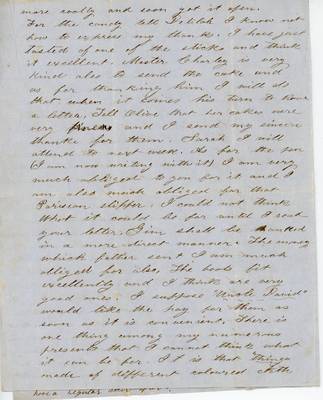 more easily and soon got it open.
For the candy tell Lililah I know not
how to express my thanks. I have just
tasted of one of the sticks and think
it excellent. Master Charley is very
kind also to send the cake and
as for thanking him I will do
that when it comes his turn to have
a letter. Tell Olive that her cakes were
very and I send my sincere
thanks for them. Sarah I will
attend to next week. As for the pen
(I am now writing with it) I am very
much obliged to you for it and I
am also much obliged for that
Parisean slipper. I could not think
what it could be for until I read
your letter. Jim shall be thanked
in a more direct manner. The money
which father sent I am much
obliged for also. The boots fit
excellently and I think are very
good ones. I suppose "Uncle David"
would like the pay for them as
soon as it is convenient. There is
one thing among my numerous
presents that I cannot think what
it can be for. It is that things
made of different coloured cloth
have a regular